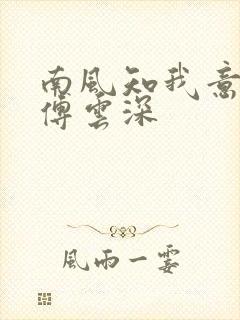 南風知我意
傅雲深
風雨一霎